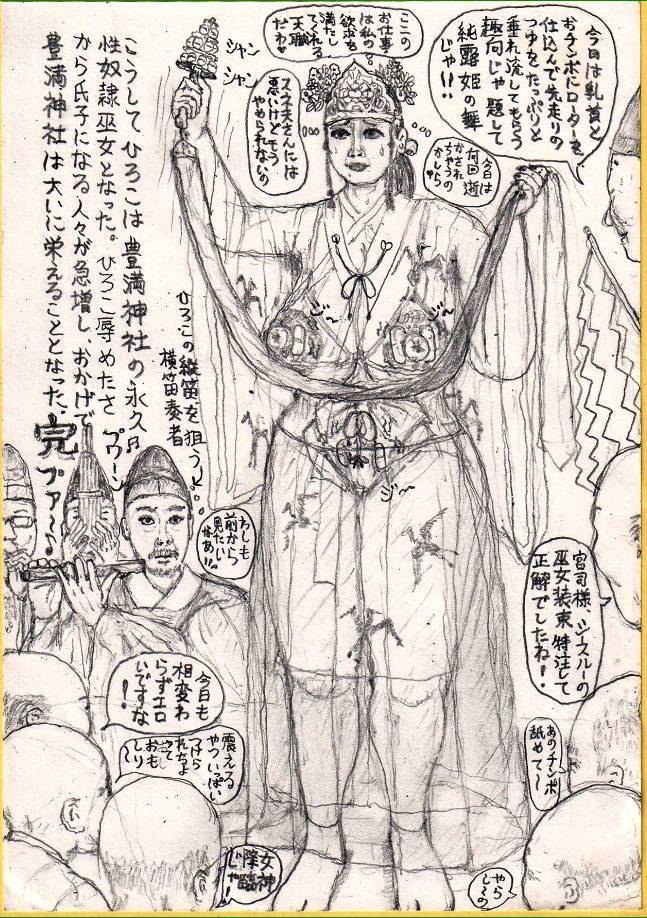 今日は乳首と
おチンポにローターを
仕込んで先走りの
つゆをたっぷりと
垂れ流してもらう
趣向じゃ 題して
純露姫の舞
じゃ!!
ここの
お仕事
は私の
欲求を
満たし
てくれる
天職
だわ♥
シャン
シャン
スネ夫さんには
悪いけどもう
やめられないの
今日は
何回逝
かされ
ちゃうの
かしら
ジ〜
ジ〜
ジ〜
こうしてひろこは豊満神社の永久
性奴隷巫女となった。ひろこ辱めたさ
から氏子になる人々が急増し、おかげで
豊満神社は大いに栄えることとなった。
完
プァ〜♪
プワーン♫
ひろこの縦笛を狙う
横笛奏者
わしも
前から
見たい
なあ!!
宮司様、シースルーの
巫女装束特注して
正解でしたね!
今日も
相変わ
らずエロ
いですな
!
震えるやら
おもしり
あのチンポ
舐めて〜
女神
降臨
じゃ!
やら
し〜の